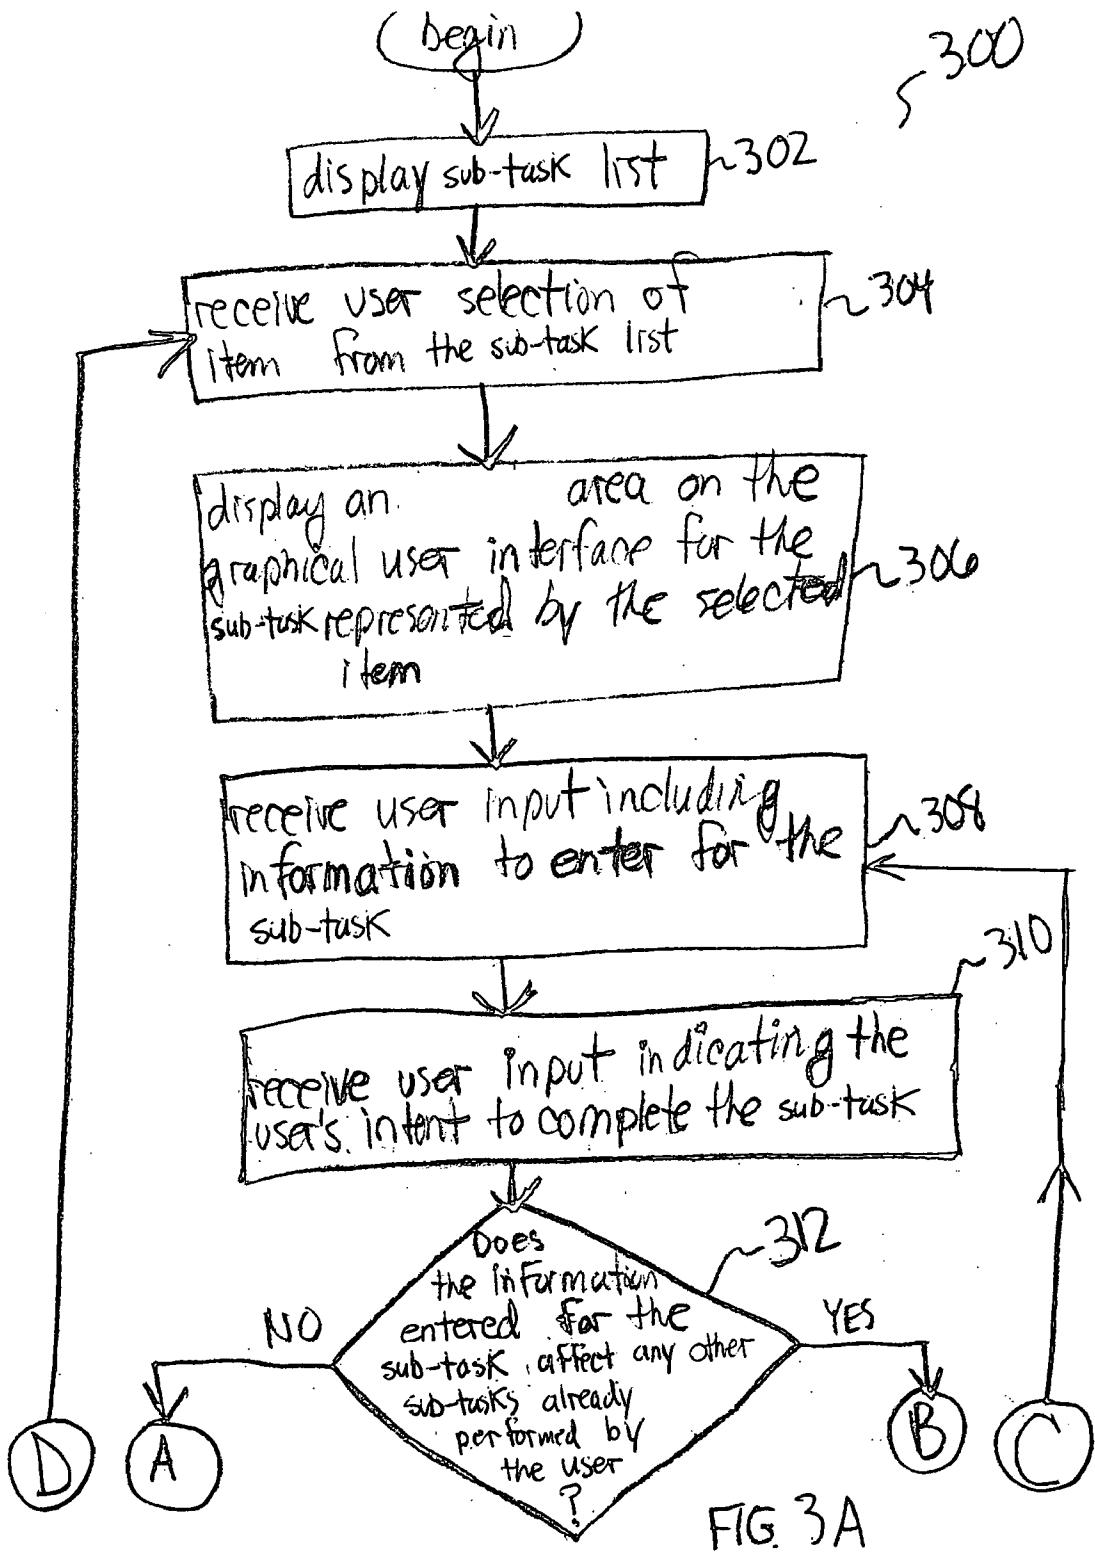 begin
300
display sub-task list
302
receive user selection of
item from the sub-task list
304
display an area on the
graphical user interface for the
sub-task represented by the selected
item
306
receive user input including
information to enter for the
sub-task
308
receive user input indicating the
user's intent to complete the sub-task
310
Does
the information
entered for the
sub-task affect any other
sub-tasks already
performed by
the user
?
312
NO
YES
D
A
B
C
FIG. 3A